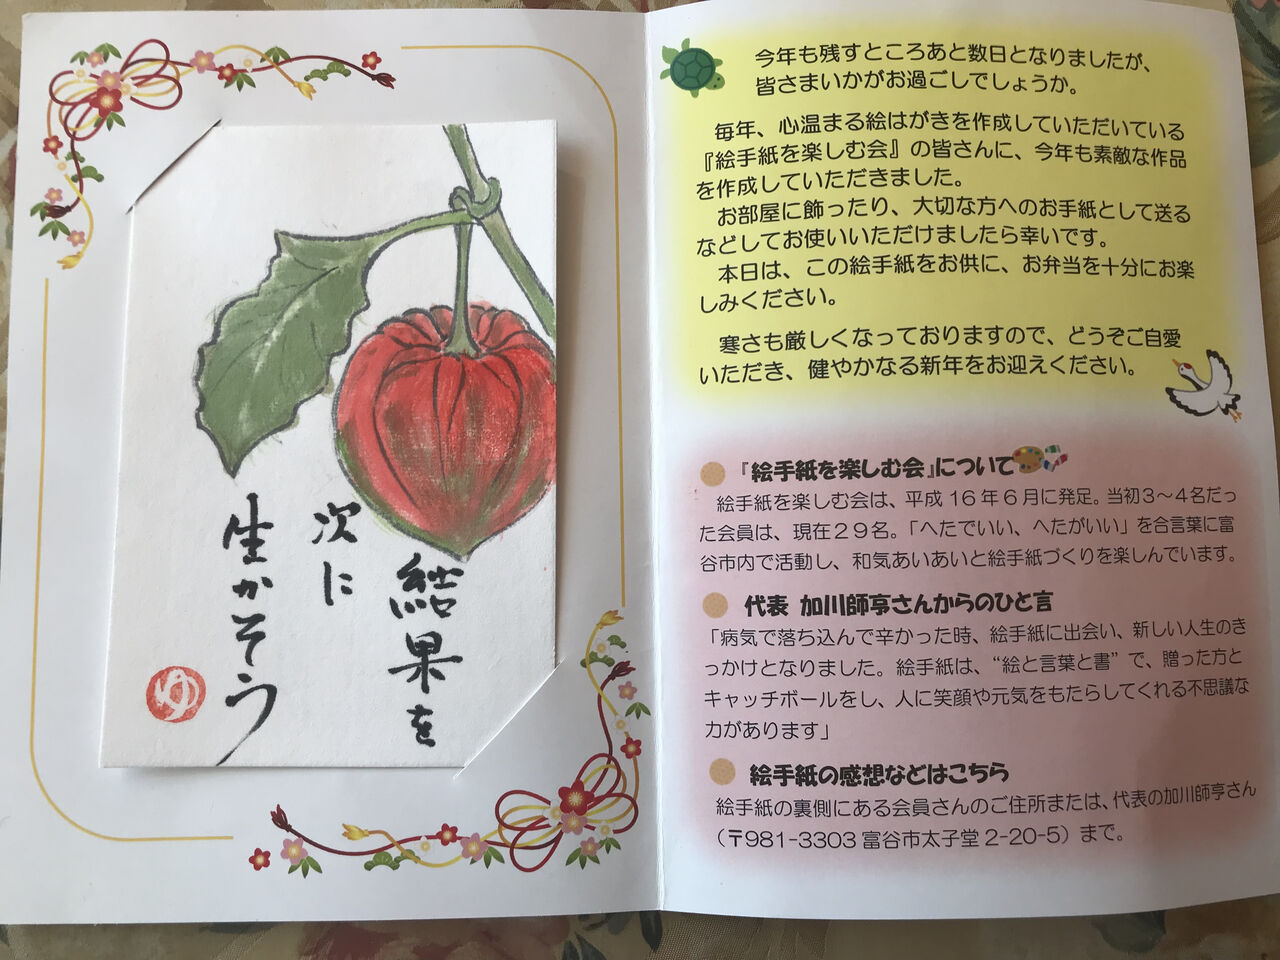 結果を
次に
生かそう
ゆ
今年も残すところあと数日となりましたが、
皆さまいかがお過ごしでしょうか。
毎年、心温まる絵はがきを作成していただいている
『絵手紙を楽しむ会』の皆さんに、今年も素敵な作品
を作成していただきました。
お部屋に飾ったり、大切な方へのお手紙として送る
などしてお使いいただけましたら幸いです。
本日は、この絵手紙をお供に、お弁当を十分にお楽
しみください。
寒さも厳しくなっておりますので、どうぞご自愛
いただき、健やかなる新年をお迎えください。
『絵手紙を楽しむ会』について
絵手紙を楽しむ会は、平成16年6月に発足。当初3～4名だっ
た会員は、現在29名。「へたでいい、へたがいい」を合言葉に富
谷市内で活動し、和気あいあいと絵手紙づくりを楽しんでいます。
代表 加川師亨さんからのひと言
「病気で落ち込んで辛かった時、絵手紙に出会い、新しい人生のき
っかけとなりました。絵手紙は、“絵と言葉と書”で、贈った方と
キャッチボールをし、人に笑顔や元気をもたらしてくれる不思議な
力があります」
絵手紙の感想などはこちら
絵手紙の裏側にある会員さんのご住所または、代表の加川師亨さん
（〒981-3303 富谷市太子堂2-20-5）まで。